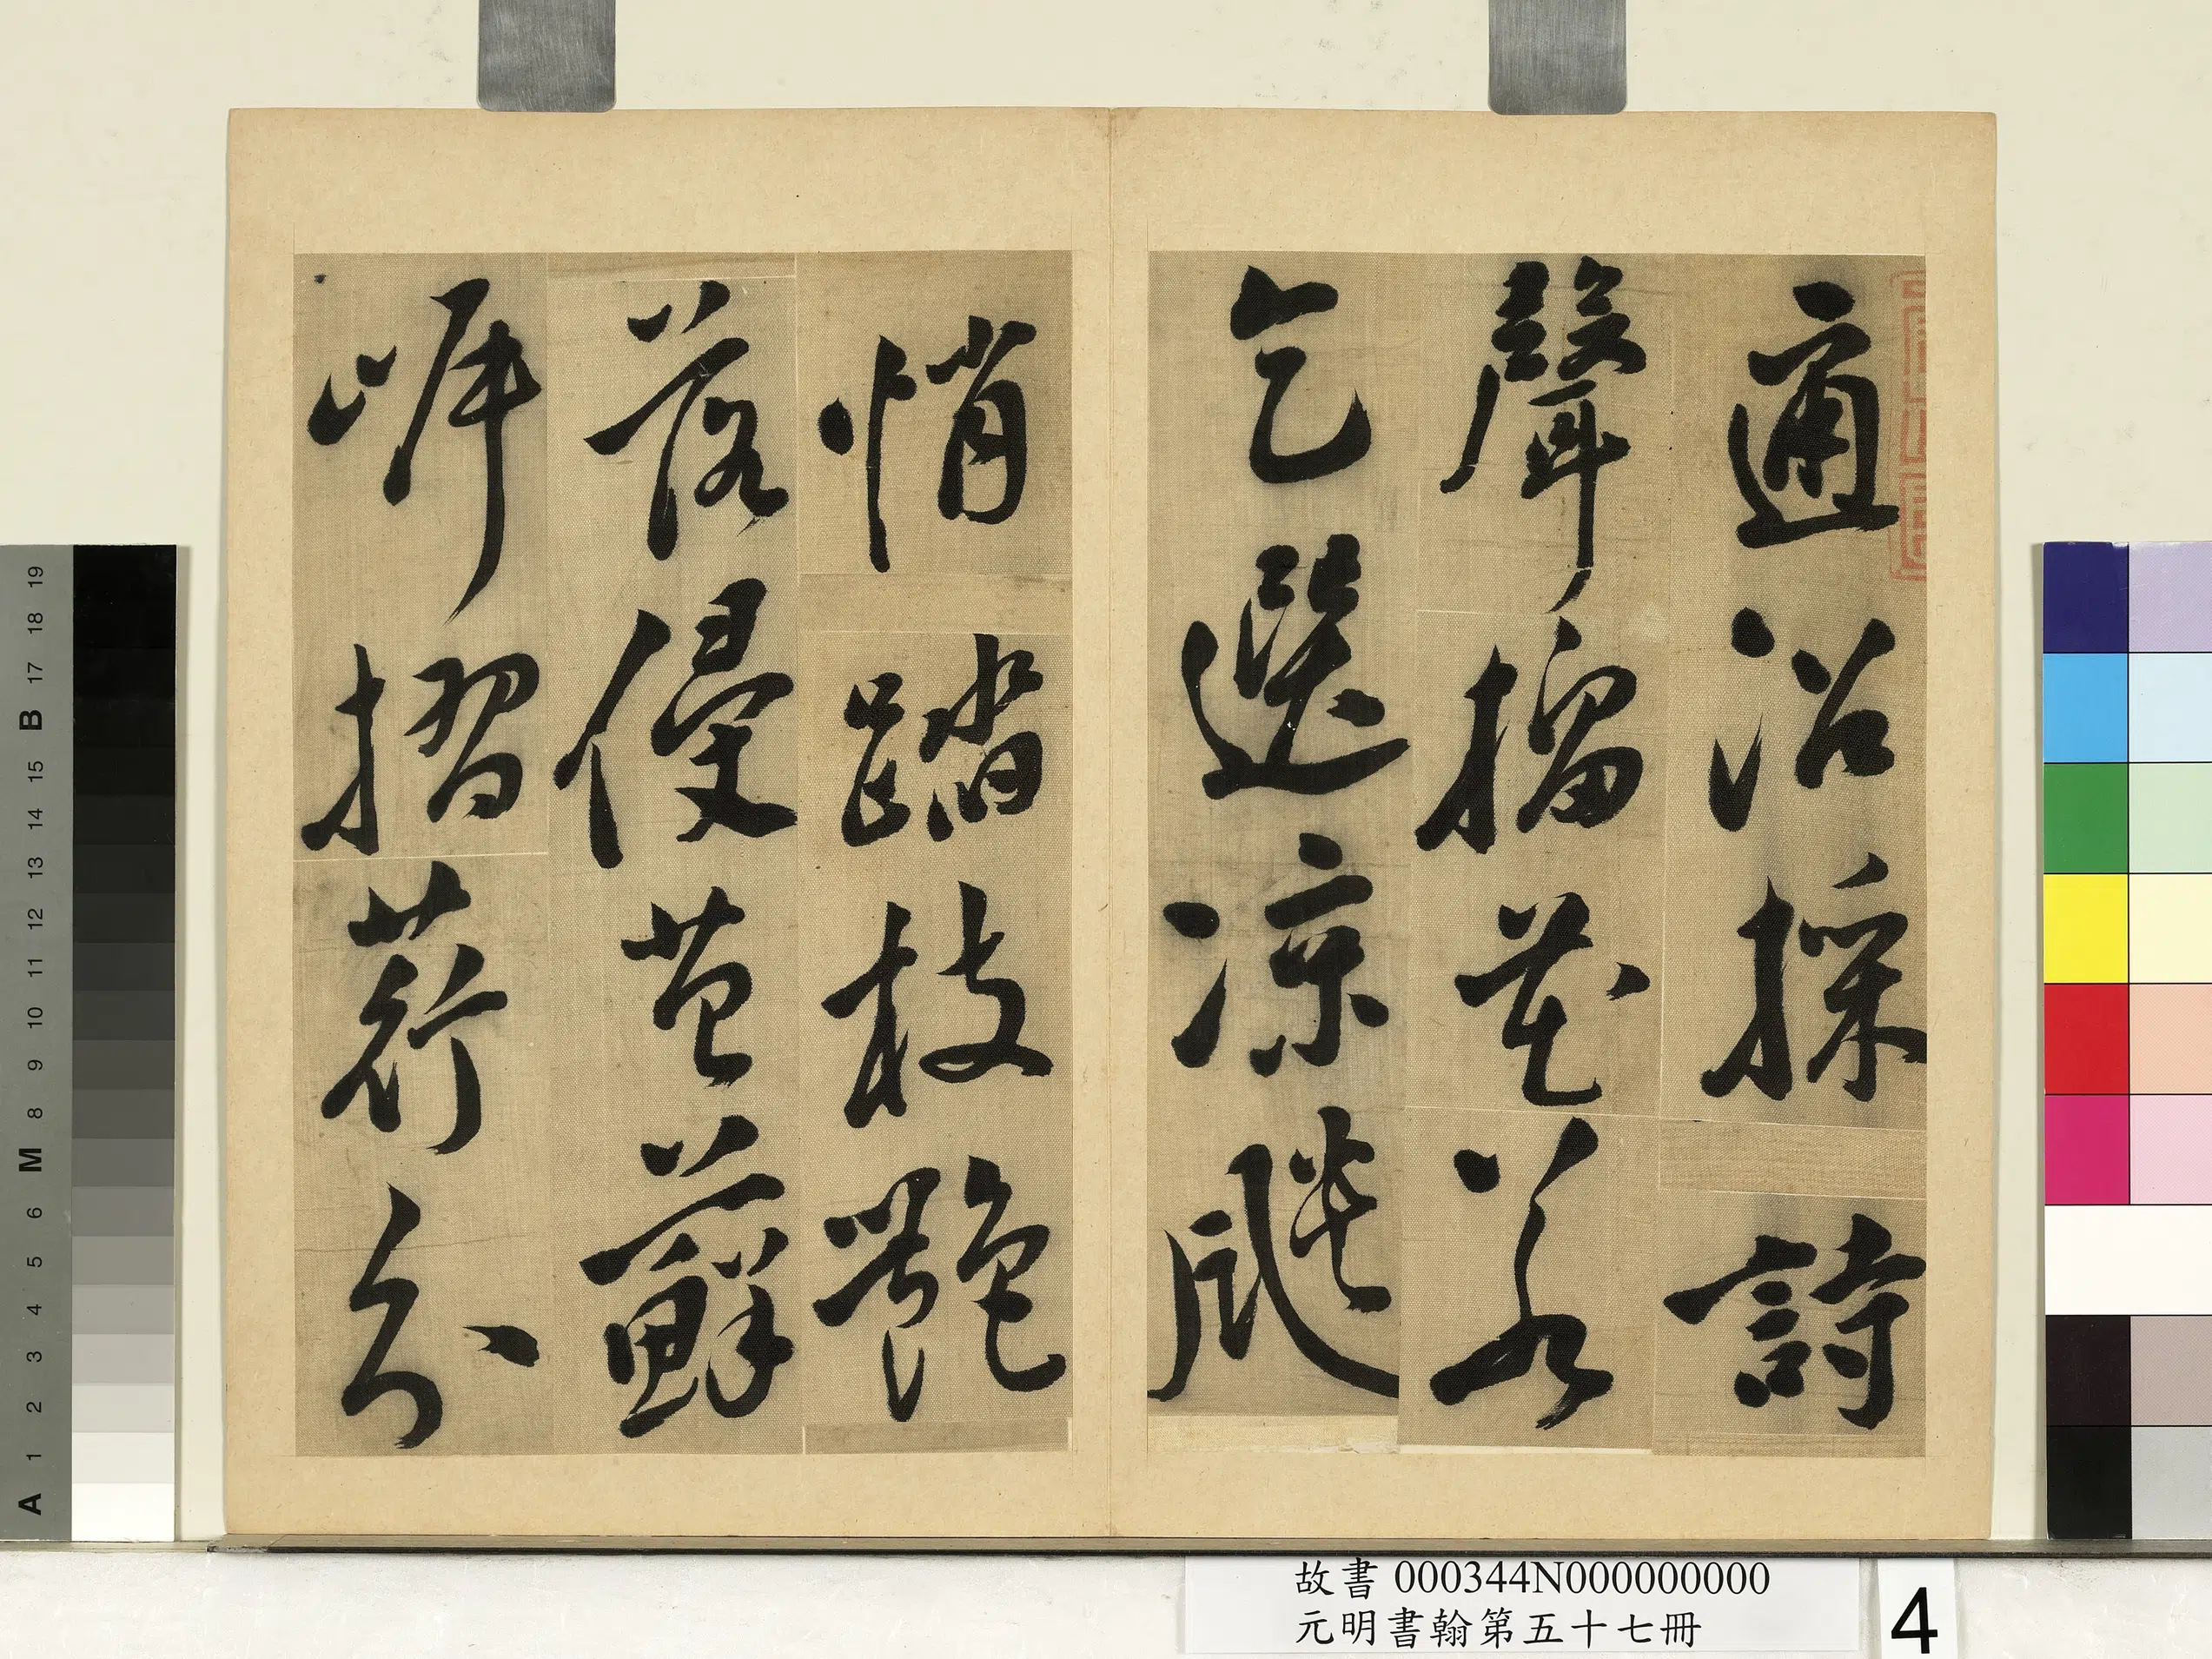 適沿採詩
聲榴花若
乞選涼飈
悄踏枝艷
落侵苔蘚
摺荇分
故書 000344N000000000
元明書翰第五十七冊
4
19 18 17 B 15 14 13 12 11 10 9 8 M 6 5 4 3 2 1 A